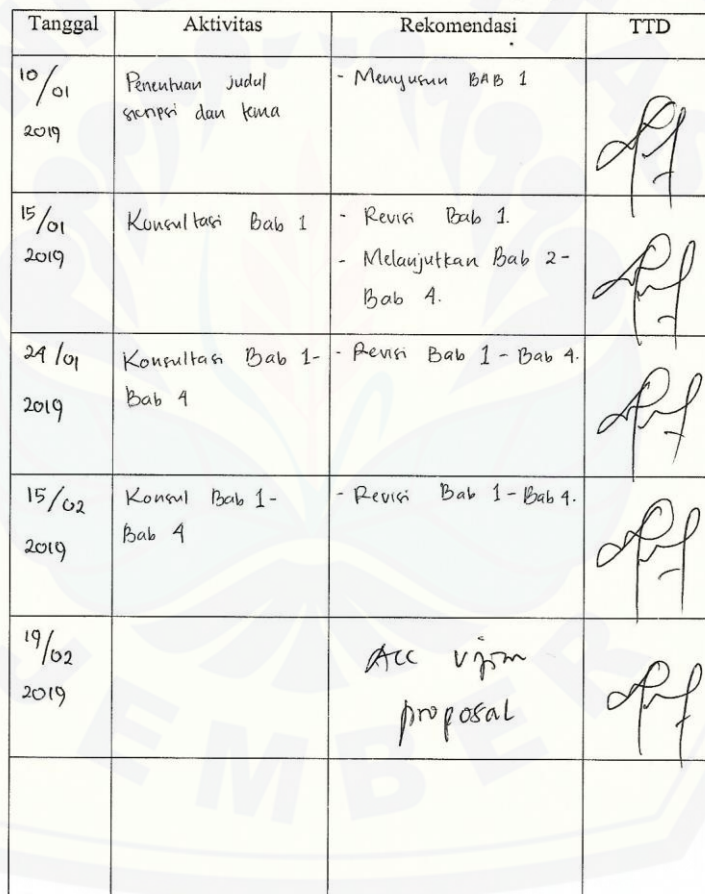 Tanggal Aktivitas Rekomendasi TTD
10/01 2019 Penentuan judul - Menyusun BAB 1
skripsi dan tema
15/01 2019 Konsultasi Bab 1 - Revisi Bab 1.
- Melanjutkan Bab 2 -
Bab 4.
24/01 2019 Konsultasi Bab 1- - Revisi Bab 1 - Bab 4.
Bab 4
15/02 2019 Konsul Bab 1- - Revisi Bab 1 - Bab 4.
Bab 4
19/02 2019 Acc ujian
proposal
JEMBER